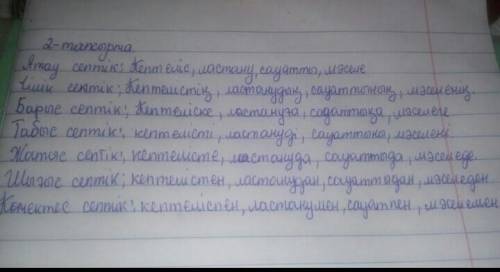 2-тапсырма.
Атау септік: Кептеліс, ластану, сауатты, мәселе
Ілік септік: Кептелістің, ластанудың, сауаттының, мәселенің.
Барыс септік: Кептеліске, ластануға, сауаттыға, мәселеге
Табыс септік: кептелісті, ластануді, сауаттыны, мәселені
Жатыс септік: кептелісте, ластануда, сауаттыда, мәселеде.
Шығыс септік; кептелістен, ластанудан, сауаттыдан, мәселеден
Көмектес септік: кептеліспен, ластанумен, сауатпен, мәселемен